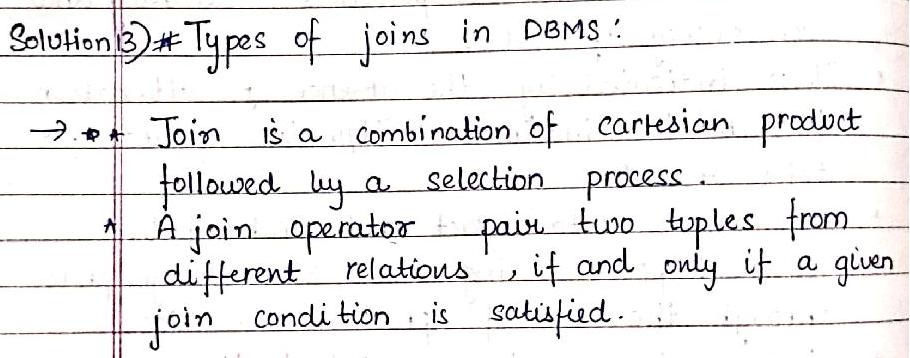 Solution 13) # Types of joins in DBMS :
→ * * Join is a combination of cartesian product
followed by a selection process .
* A join operator pair two tuples from
different relations , if and only if a given
join condition is satisfied .